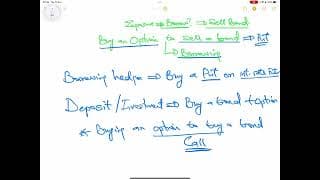 Exposure ⇒ Borrow ⇒ Sell Bond
Buy an Option to sell a bond ⇒ Put
↳ Borrowing
Borrowing hedge ⇒ Buy a Put on
Deposit / Investment ⇒ Buy a bond option
& Buying an option to buy a bond
Call